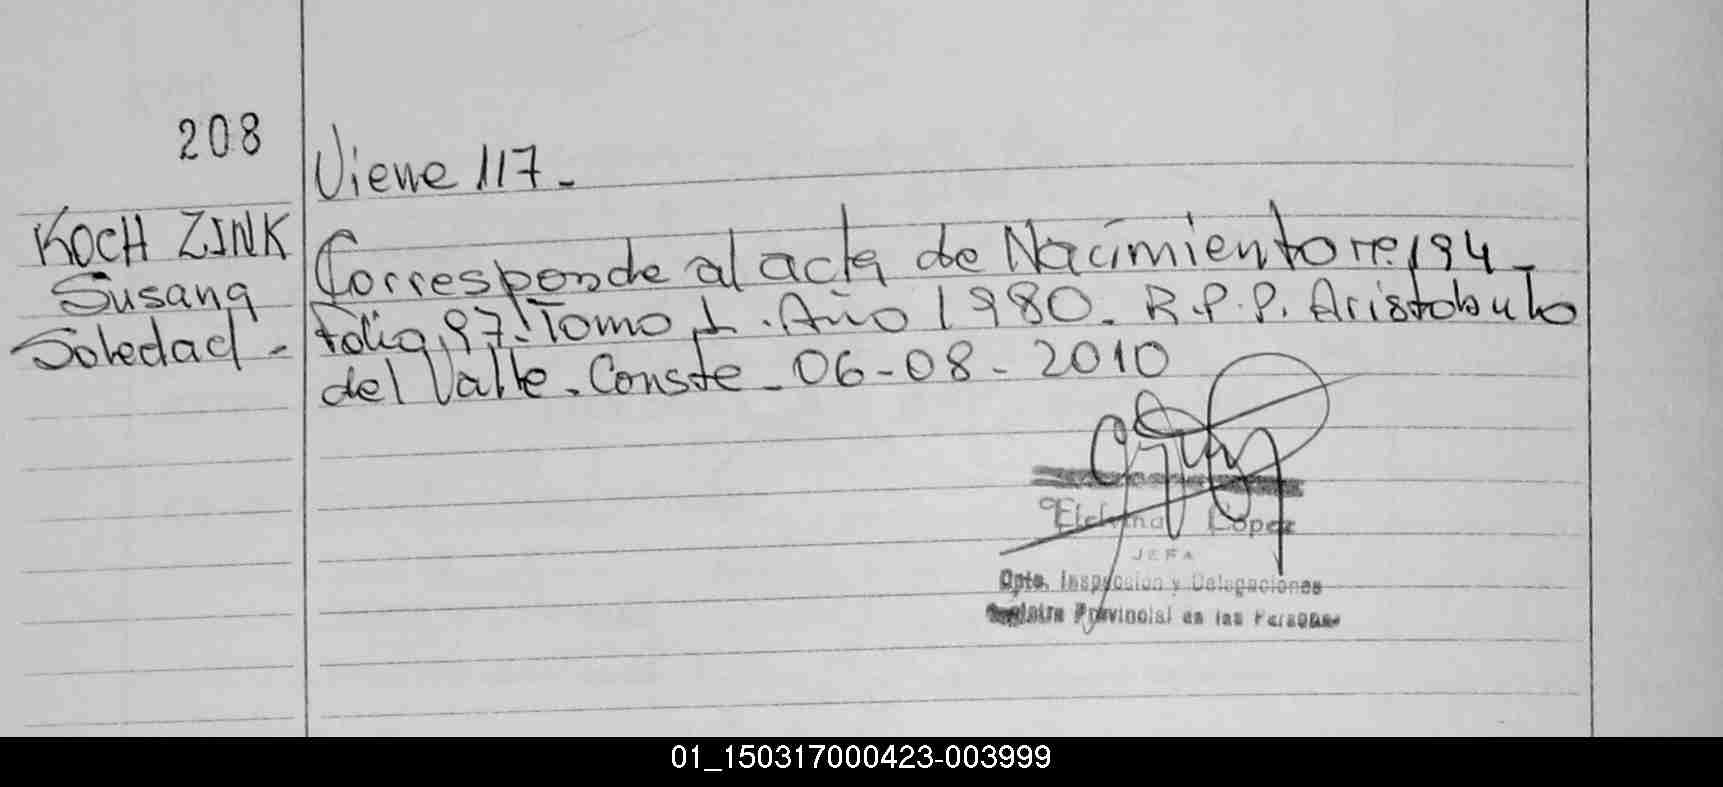 208
Viene 117.-
KOCH ZINK
Susana
Soledad.-
Corresponde al acta de Nacimiento nº 194-
folio 97. Tomo 1. Año 1980. R.P.P. Aristobulo
del Valle. Conste. 06-08-2010
Lopez
JEFA
Dpto. Inspección y Delegaciones
Registro Provincial de las Personas
01_150317000423-003999